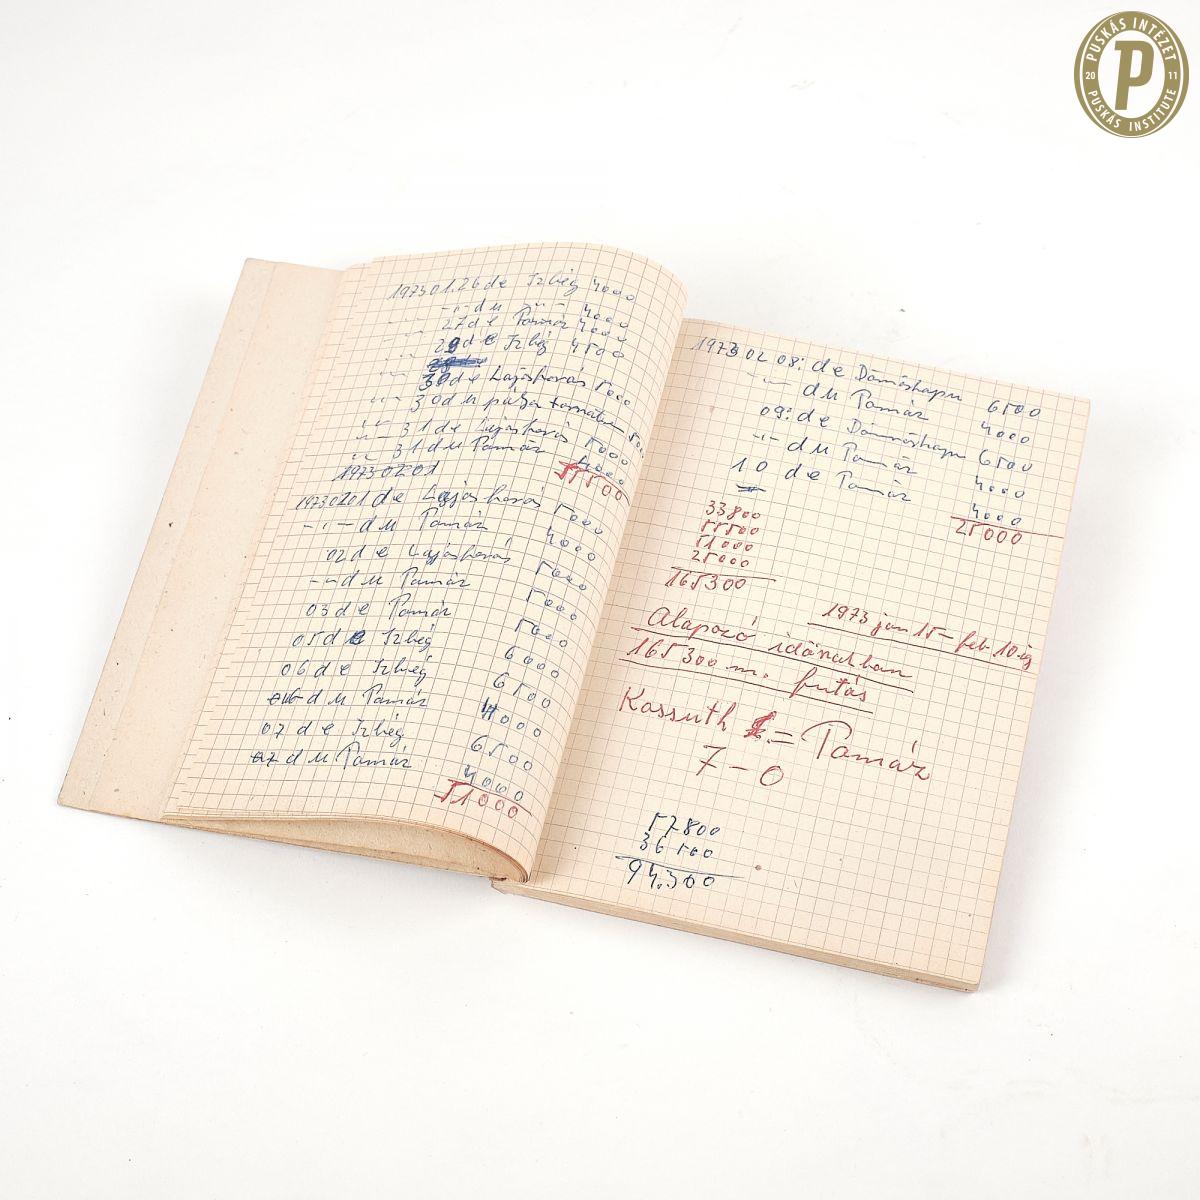 PUSKÁS INTÉZET
20 P 11
PUSKÁS INSTITUTE
1973 01.26 de Izbég 4000
-"- du -"- 4000
-"- 27 de Pomáz 4000
-"- 29 de Izbég 4500
-"- 30 de Lajosforrás 5000
-"- 30 du pálya tornaterem 500
-"- 31 de Lajosforrás 5000
-"- 31 du Pomáz 4000
19730201
55500
19730201 de Lajosforrás 5000
-"- du Pomáz 4000
02 de Lajosforrás 5000
-"- du Pomáz 5000
03 de Pomáz 5000
05 de Izbég 6000
06 de Izbég 6500
06 du Pomáz 4000
07 de Izbég 6500
07 du Pomáz 4000
51000
1973 02 08: de Dömörkapu 6500
-"- du Pomáz 4000
09: de Dömörkapu 6500
-"- du Pomáz 4000
10 de Pomáz 4000
25000
33800
55500
51000
25000
165300
1973 jan 15- feb. 10-ig
Alapozó időszakban
165300 m. futás
Kossuth - Pomáz
7-0
57800
36500
94.300